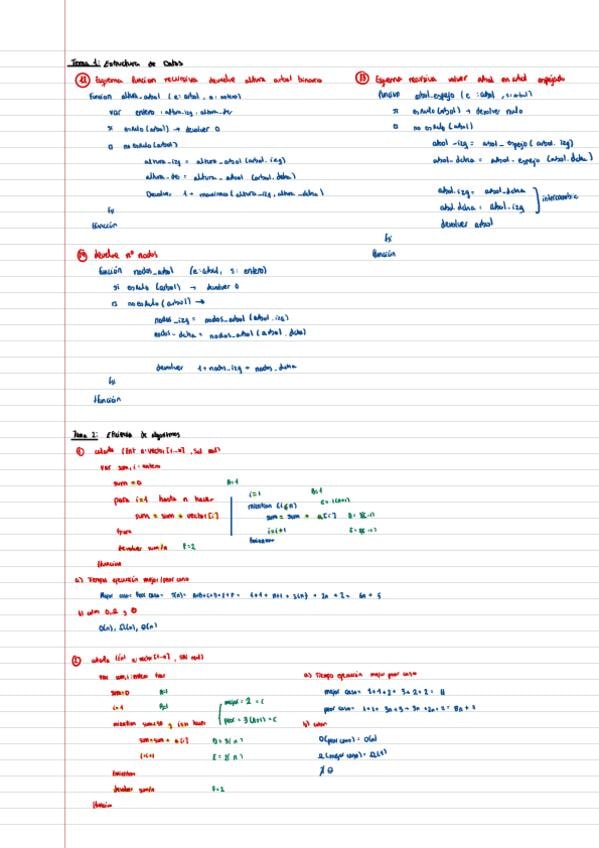 Tema 1: Estructura de Datos
12 Esquema funcion recursiva devuelve altura arbol binario
funcion altura_arbol (e: arbol, s: entero)
var entero: altura_izq, altura_de
si esNulo (arbol) → devolver 0
□ no esNulo (arbol)
altura_izq = altura_arbol (arbol.izq)
altura_de = altura_arbol (arbol.dcha)
Devolver 1 + maximo (altura_izq, altura_dcha)
fsi
ffunción
13 Esquema recursiva volver arbol en arbol espejado
funcion arbol_espejo (e: arbol, s: arbol)
si esNulo (arbol) → devolver nulo
□ no esNulo (arbol)
arbol_izq = arbol_espejo (arbol.izq)
arbol_dcha = arbol_espejo (arbol.dcha)
arbol.izq = arbol_dcha
arbol.dcha = arbol_izq
intercambio
devolver arbol
fsi
ffunción
devuelve nº nodos
función nodos_arbol (e: arbol, s: entero)
si esNulo (arbol) → devolver 0
□ no esNulo (arbol) →
nodos_izq = nodos_arbol (arbol.izq)
nodos_dcha = nodos_arbol (arbol.dcha)
devolver 1 + nodos_izq + nodos_dcha
fsi
ffunción
Tema 2: Eficiencia de algoritmos
1 calcula (Ent a: vector [1-n], Sal real)
var sum, i: entero
sum = 0 A=1
para i=1 hasta n hacer
sum = sum + vector [i]
fpara
devolver sum/n F=2
ffuncion
i=1 B=1
mientras (i≤n) C=1(n+1)
sum = sum + a[i]
i=i+1
fmientras
a) Tiempo ejecución mejor/peor caso
Mejor caso = Peor caso = T(n) = A+B+C+D+E+F = 1+1+ n+1 + 3(n) + 2n + 2 = 6n + 5
b) cotas O, Ω y Θ
O(n), Ω(n), Θ(n)
2 calcula (Ent a: vector [1-n], Sal real)
var sum, i: entero
sum=0 A=1
i=1 B=1
mejor = 2 = C
peor = 3(n+1) = C
mientras sum y i≤n hacer
sum = sum + a[i] D=3(n)
i=i+1 E=2(n)
fmientras
devolver sum/n F=2
ffuncion
a) Tiempo ejecución mejor peor caso
mejor caso =
peor caso = = 8n +
b) cotas
O(peor caso) = O(n)
Ω(mejor caso) = Ω(1)
∄ Θ